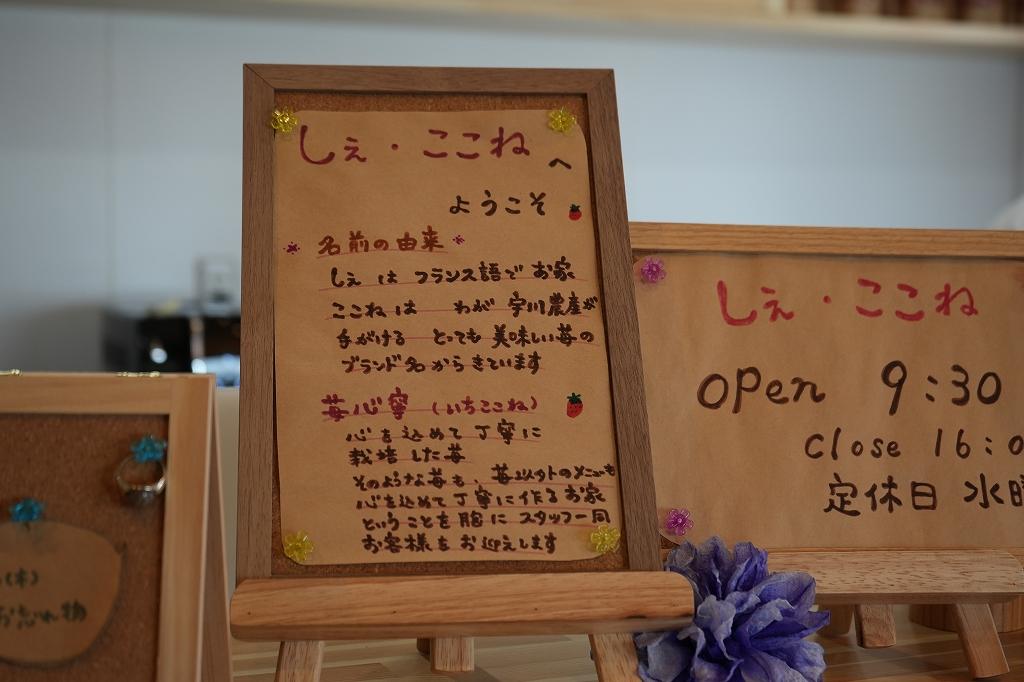 しぇ・ここね
へ
ようこそ
名前の由来
しぇ は フランス語で お家
ここねは わが 宇川農産が
手がける とっても 美味しい苺の
ブランド名からきています
苺心寧 (いちここね)
心を込めて丁寧に
栽培した苺
そのような苺も 苺以外のメニューも
心を込めて丁寧に作るお家
ということを胸に スタッフ一同
お客様をお迎えします
しぇ・ここね
open 9:30
close 16:0
定休日 水曜
(木)
お忘れ物